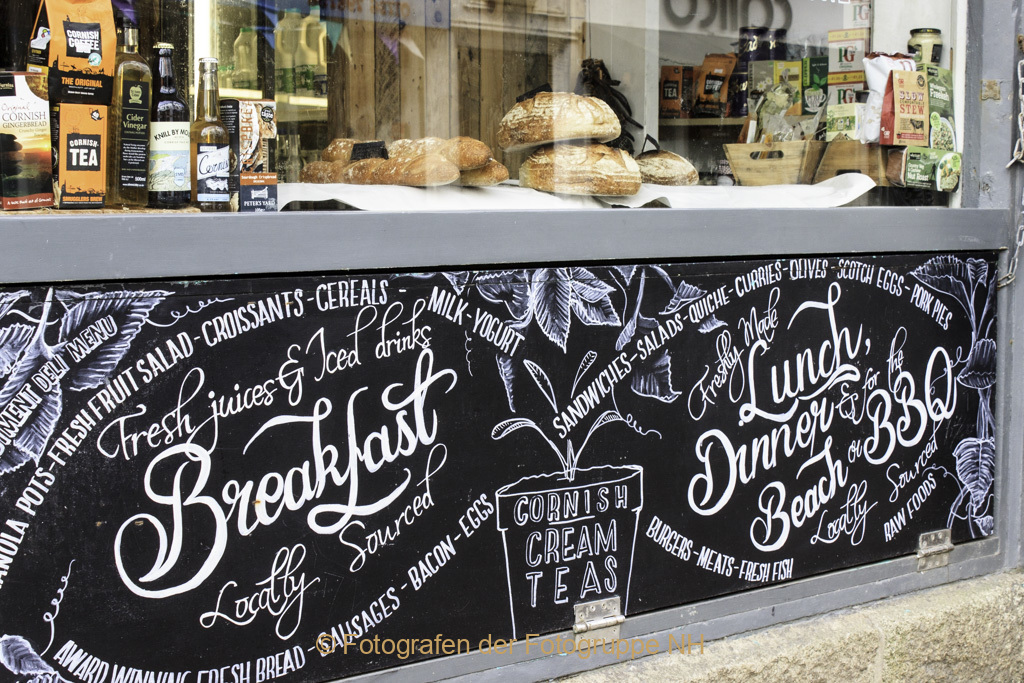 CORNISH COFFEE
THE ORIGINAL
Original
CORNISH
GINGERBREAD
CORNISH
TEA
SMUGGLERS BREW
Cider
Vinegar
KNILL BY MO
PETER'S YA
TEA
DELI MENU
GRANOLA POTS-FRESH FRUIT SALAD-CROISSANTS-CEREALS-
MILK-YOGURT
Fresh juices & Iced drinks
Breakfast
Locally Sourced
AWARD WINNING FRESH BREAD-SAUSAGES-BACON-EGGS
CORNISH
CREAM
TEAS
SANDWICHES-SALADS-QUICHE-CURRIES-OLIVES-SCOTCH EGGS-PORK PIES
Freshly Made
Lunch,
Dinner & for the
Beach or BBQ
Locally Sourced
BURGERS-MEATS-FRESH FISH
RAW FOODS
© Fotografen der Fotogruppe NH